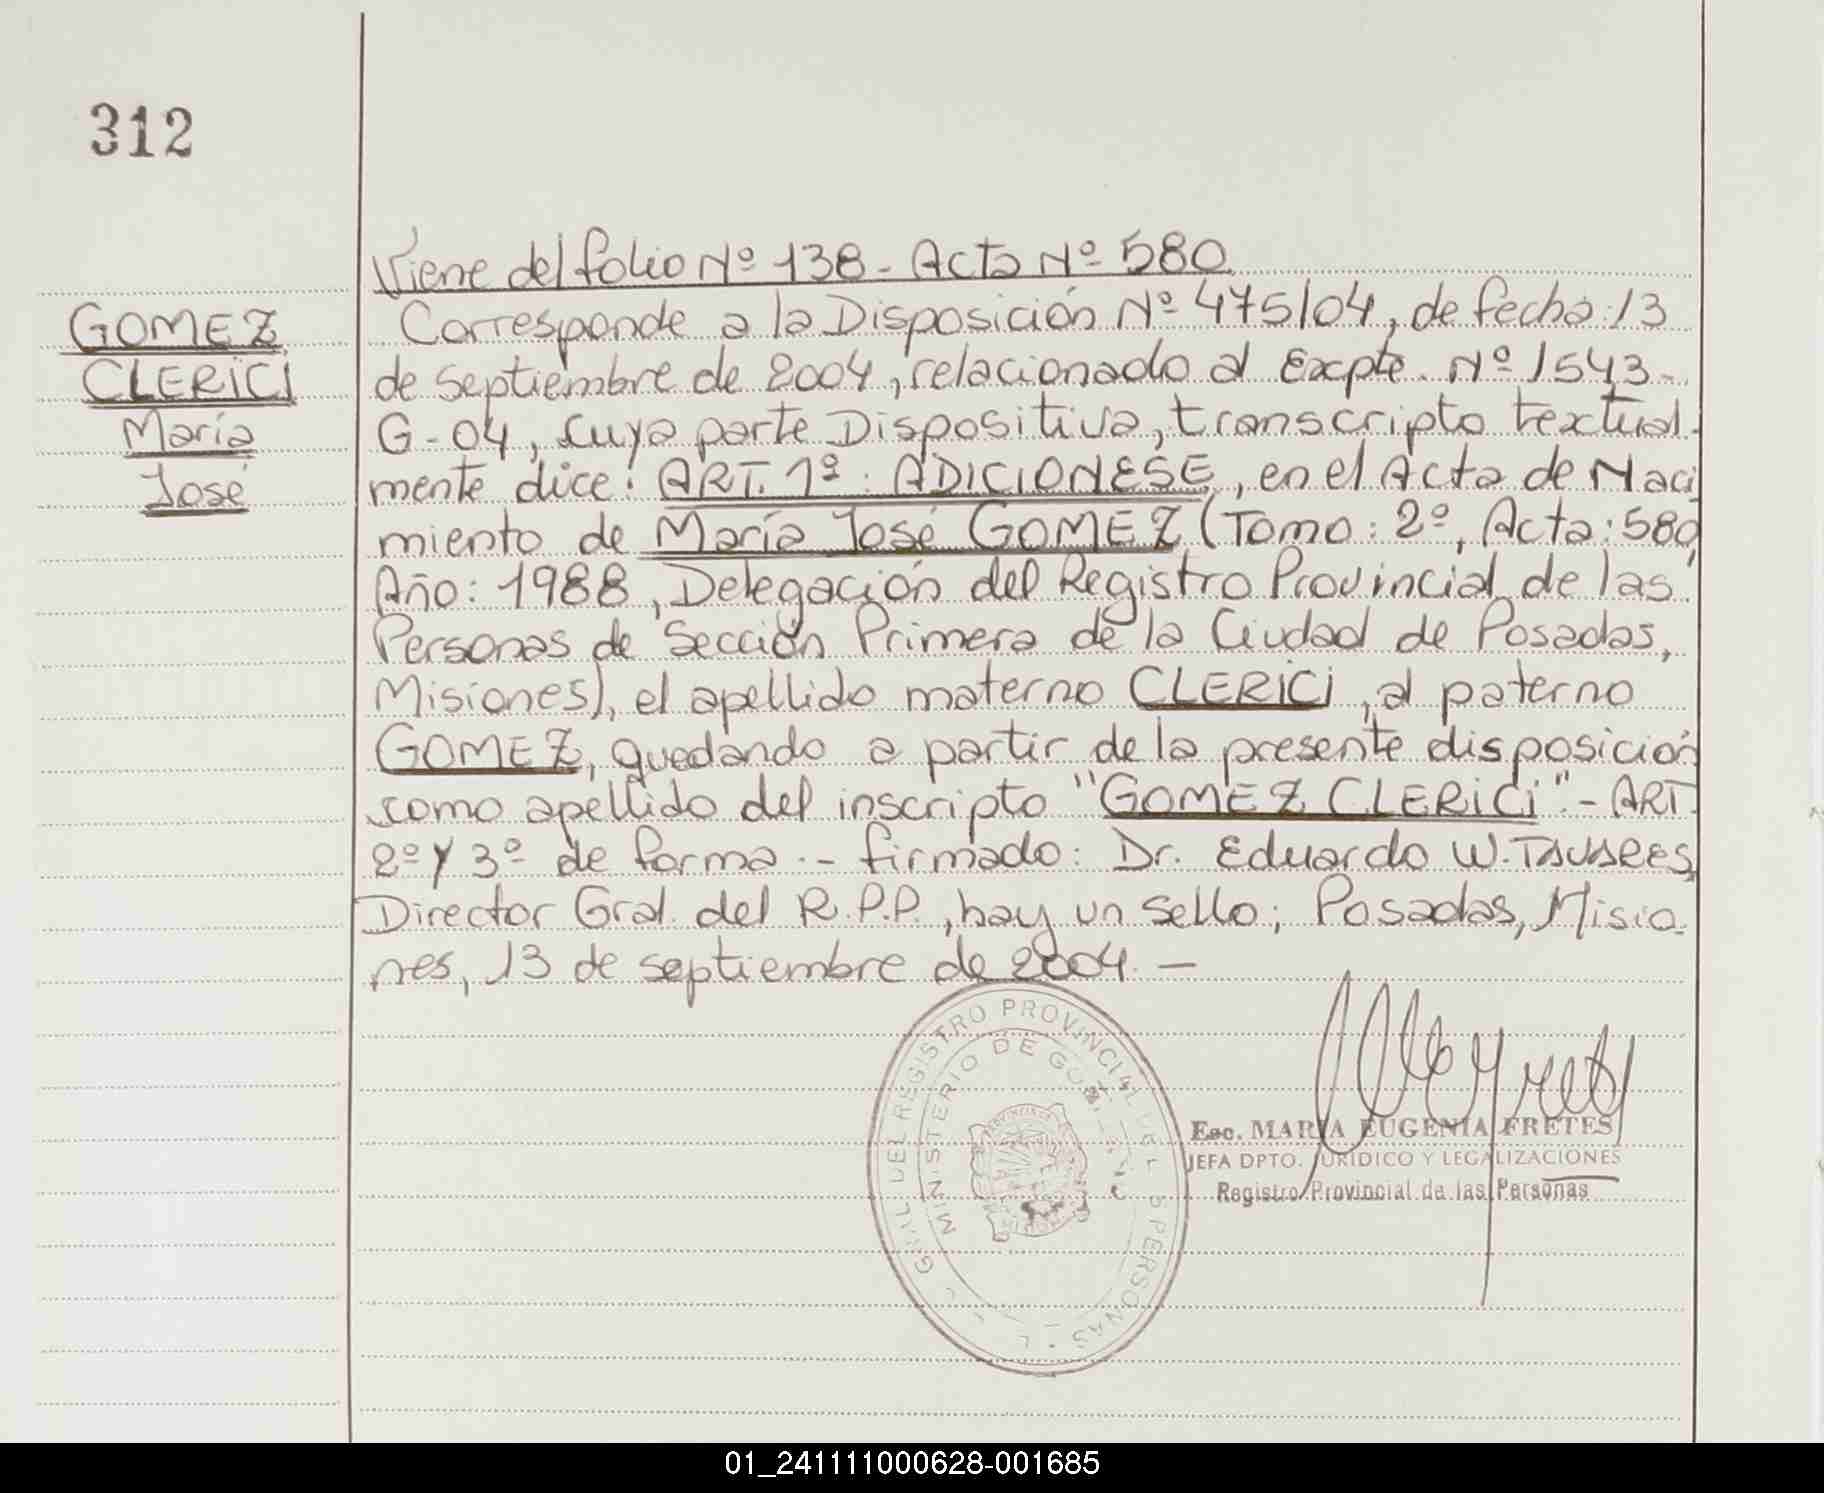 312
GOMEZ
CLERICI
María
José
Viene del folio Nº 138 - Acta Nº 580
Corresponde a la Disposición Nº 475/04, de fecha: 13
de septiembre de 2004, relacionado al Expte. Nº 1543-
G-04, cuya parte Dispositiva, transcripto textual-
mente dice: ART. 1º: ADICIONESE, en el Acta de Naci
miento de María José GOMEZ (Tomo: 2º, Acta: 580,
Año: 1988, Delegación del Registro Provincial de las
Personas de Sección Primera de la Ciudad de Posadas,
Misiones), el apellido materno CLERICI, al paterno
GOMEZ, quedando a partir de la presente disposición
como apellido del inscripto "GOMEZ CLERICI".- ART.
2º y 3º de forma.- firmado: Dr. Eduardo W. TAVARES,
Director Gral. del R.P.P., hay un sello; Posadas, Misio-
nes, 13 de septiembre de 2004.-
GRAL DEL REGISTRO PROVINCIAL DE LAS PERSONAS
MINISTERIO DE
PROVINCIA DE
Esc. MARIA EUGENIA FRETES
JEFA DPTO. JURIDICO Y LEGALIZACIONES
Registro Provincial de las Personas
01_241111000628-001685